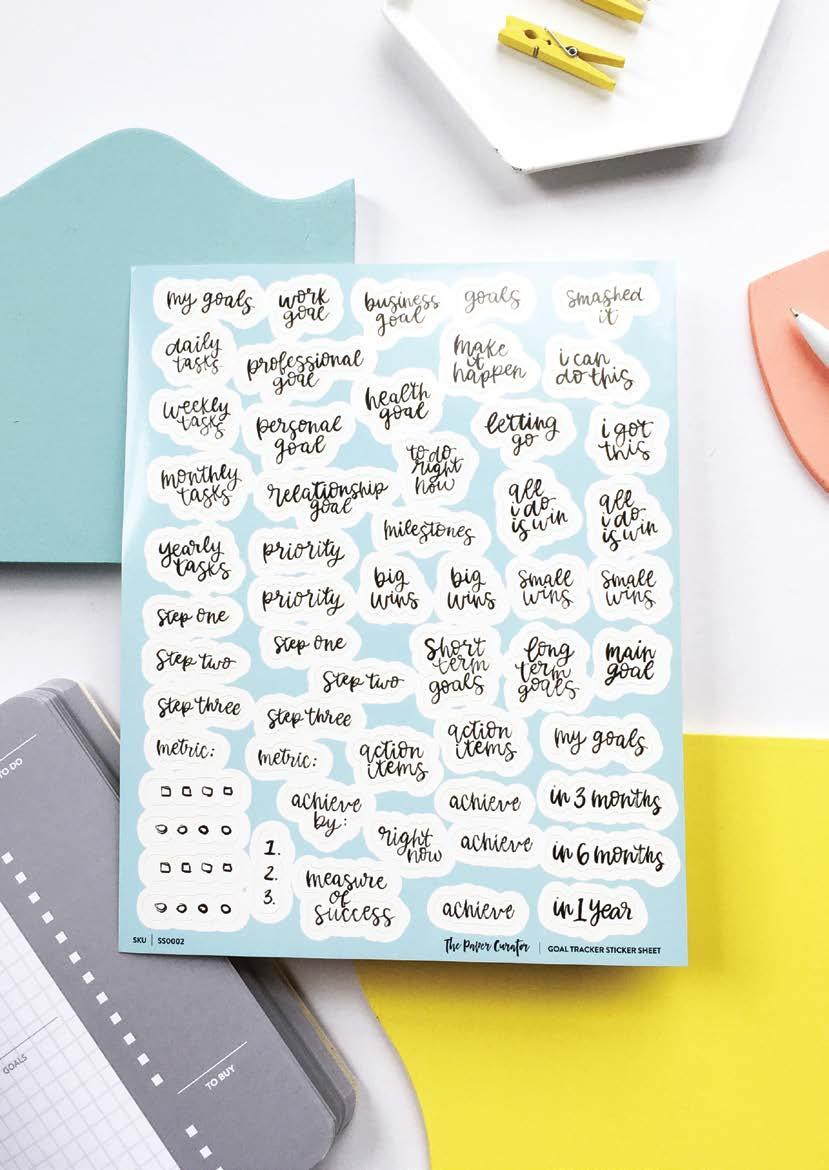 my goals
work
goal
business
goal
goals
smashed
it
daily
tasks
professional
goal
make
it
happen
i can
do this
weekly
tasks
personal
goal
health
goal
letting
go
i got
this
to do
right
now
monthly
tasks
relationship
goal
all
i do
is win
all
i do
is win
milestones
yearly
tasks
priority
big
wins
big
wins
small
wins
small
wins
priority
step one
step one
short
term
goals
long
term
goals
main
goal
step two
step two
step three
step three
action
items
my goals
metric:
metric:
action
items
achieve
by:
achieve
in 3 months
right
now
achieve
in 6 months
1.
2.
3.
measure
of
success
achieve
in 1 year
SKU | SS0002
The Paper Curator | GOAL TRACKER STICKER SHEET
TO DO
GOALS
TO BUY